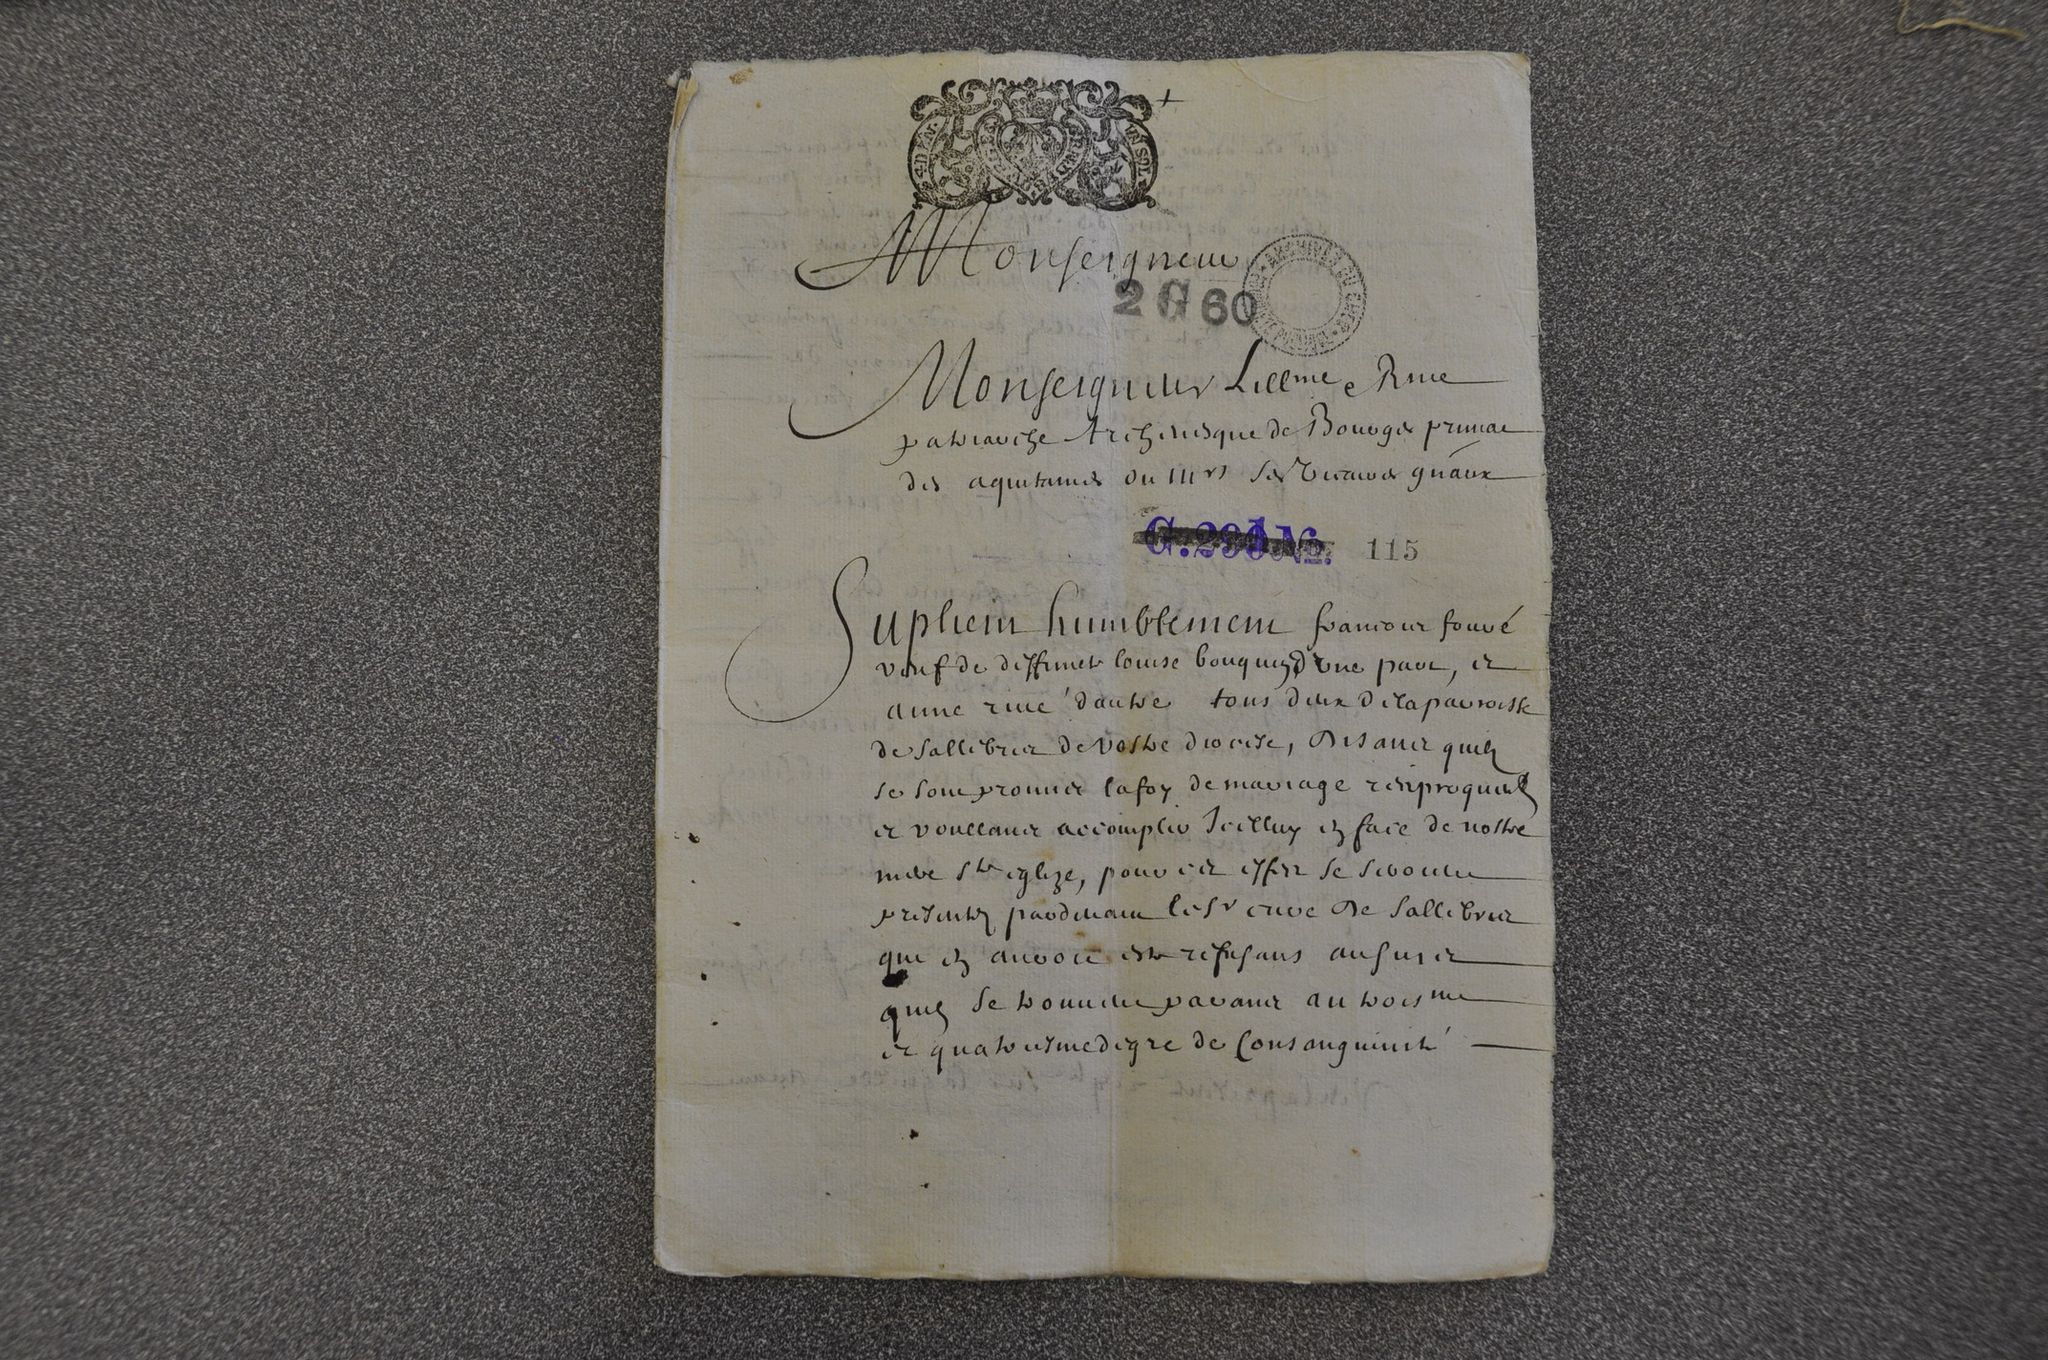 Monseigneur
2 G 60
ARCHIVES DU CHER
Monseigneur Lillme e Rme
patriarche Archevesque de Bourges primat
des aquitaines ou Mrs ses Vicaires gñaux
G. 290 No. 115
Suplient humblement francois fouvé
veuf de deffuncte louise bouquin d'une part, et
anne rivé d'autre tous deux de la parroisse
de sallebris de vostre diocese, disants quils
se sont promis la foy de mariage resiproquemt
et voullants accomplir Icelluy en face de nostre
mere ste eglize, pour cet effect se seroient
presentez pardevant le sr curé de sallebris
qui en auroit esté refusans au suiet
quilz se trouvent parants au troisme
et quatriesme degre de Consanguinité